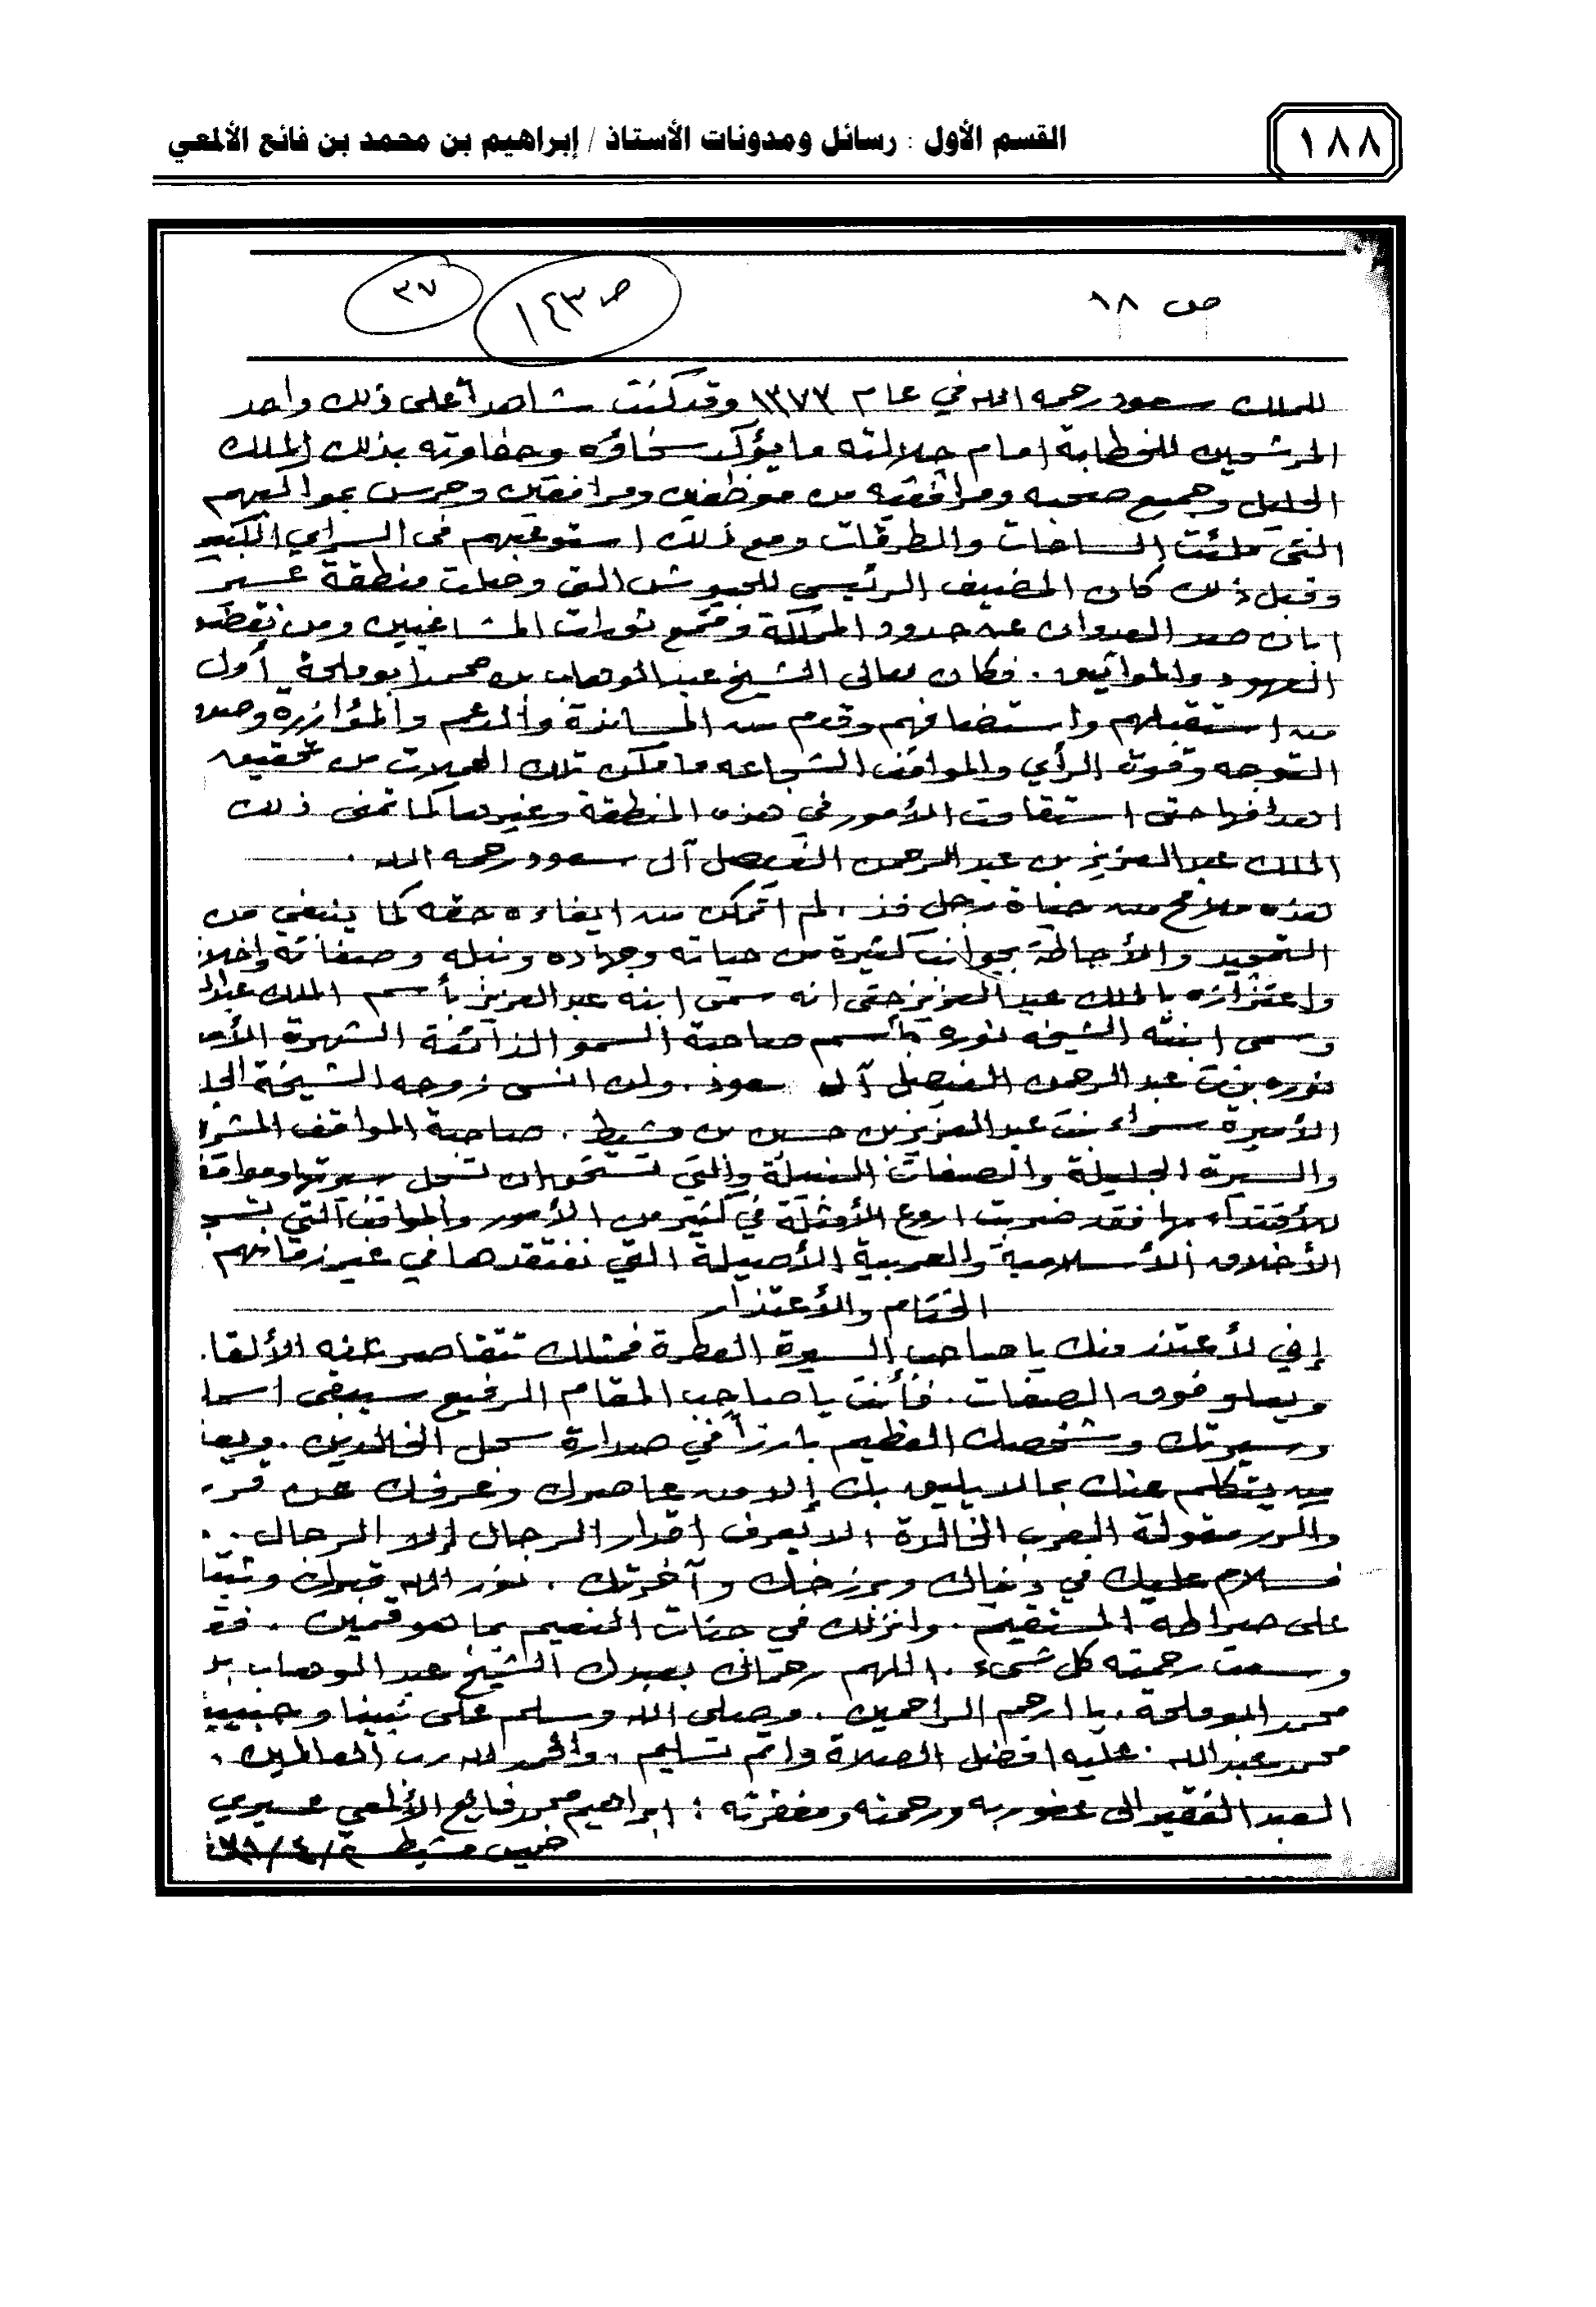 ١٨٨
القسم الأول : رسائل ومدونات الأستاذ / إبراهيم بن محمد بن فائع الألمعي
ص ١٨
ص ١٤٣
٣٧
للملك سعود رحمه الله في عام ١٣٧٣ وقد كنت شاهداً على ذلك واحد
المرشحين للخطابة امام جلالته ما يؤكد سخاؤه وحفاوته بذلك الملك
الجليل وجميع صحبه ومرافقيه من موظفين ومرافقين وحرس بمواكبهم
التي ملئت الساحات والطرقات ومع ذلك استوعبهم في السراي الكبير
وقبل ذلك كان المضيف الرئيسي للجيوش التي وصلت منطقة عسير
ابان صد العدوان عن حدود المملكة وقمع ثورات المشاغبين ومن نقض
العهود والمواثيق . فكان معالي الشيخ عبد الوهاب بن محمد ابو ملحة أول
من استقبلهم واستضافهم وقدم من المساندة والدعم والمؤازرة وحسن
التوجه وقوة الرأي والمواقف الشجاعه ما مكن تلك الحملات من تحقيق
اهدافها حتى استقامت الأمور في هذه المنطقة وغيرها كما تمنى ذلك
الملك عبد العزيز بن عبد الرحمن الفيصل آل سعود رحمه الله .
هذه ملامح من حياة رجل فذ . لم اتمكن من ايفاءه حقه كما ينبغي من
التمجيد والأحاطة بجوانب كثيرة من حياته وجهاده ونبله وصفاته واخلا
واعتزازه بالملك عبد العزيز حتى انه سمى ابنه عبد العزيز بأسم الملك عبد ال
وسمى ابنته الشيخه نوره بأسم صاحبة السمو الذائعة الشهرة الأم
نوره بنت عبد الرحمن الفيصل آل سعود . ولن انسى زوجه الشيخة الجل
الأميرة سراء بنت عبد العزيز بن حسين بن مشيط . صاحبة المواقف المشر
والسيرة الجليلة والصفات النبيلة والتي تستحق ان تسجل سيرتها ومواقف
للأقتداء بها فقد ضربت اروع الأمثلة في كثير من الأمور والمواقف التي
الأخلاق الأسلامية والعربية الأصيلة التي نفتقدها في غير زمانهم
الختام والأعتذار
إني لأعتذر منك يا صاحب السيرة العطرة فمثلك تتقاصر عنه الألقا
ويعلو فوق الصفات . فأنت يا صاحب المقام الرفيع سيبقى اسم
وسيرتك وشخصك العظيم بارزاً في صدارة سجل الخالدين .
من يتكلم عنك بما لا يليق بك إلا من عاصرك وعرفك عن قر
مقولة العرب الخالدة الا يعرف اقدار الرجال إلا الرجال .
فسلام عليك في دنياك وبرزخك وآخرتك . نور الله قبرك وثبت
على صراطه المستقيم . وانزلك في جنات النعيم بما هو قمين . فقد
وسعت رحمته كل شيء . اللهم رحماك بعبدك الشيخ عبد الوهاب بن
محمد ابو ملحة . يا ارحم الراحمين . وصلى الله وسلم على نبينا وحبيبنا
محمد بن عبد الله . عليه افضل الصلاة واتم تسليم . والحمد لله رب العالمين .
العبد الفقير الى عفو ربه ورحمته ومغفرته : ابراهيم محمد فايع الألمعي عسيري
خميس مشيط